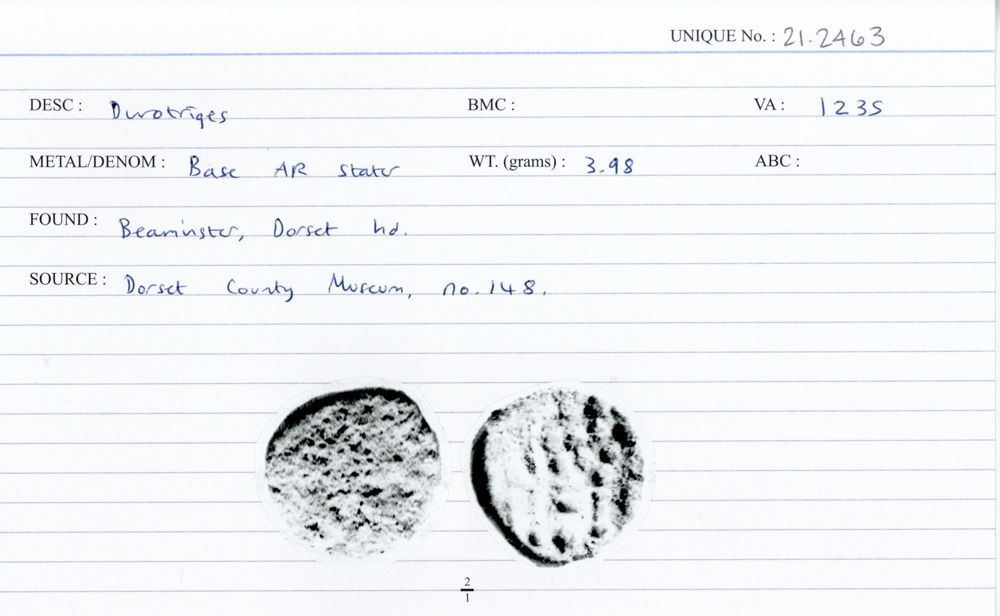 UNIQUE No. : 21.2463
DESC : Durotriges BMC : VA : 1235
METAL/DENOM : Base AR stater WT. (grams) : 3.98 ABC :
FOUND : Beaminster, Dorset hd.
SOURCE : Dorset County Museum, no. 148.
2
1